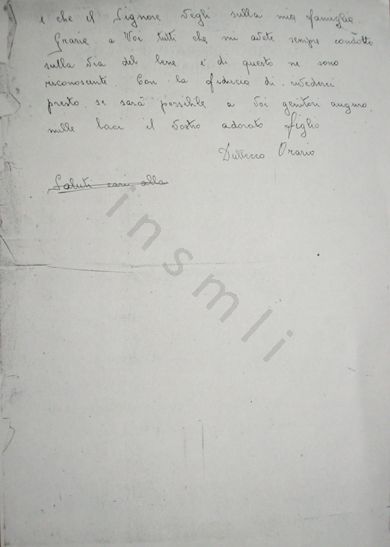 e che il Signore vegli sulla mia famiglia.
Grazie a Voi tutti che mi avete sempre condotto
sulla via del bene e di questo ne sono
riconoscente. Con la fiducia di rivederci
presto se sarà possibile a voi genitori auguro
mille baci il vostro adorato figlio
Orazio
Saluti cari alla
insmli